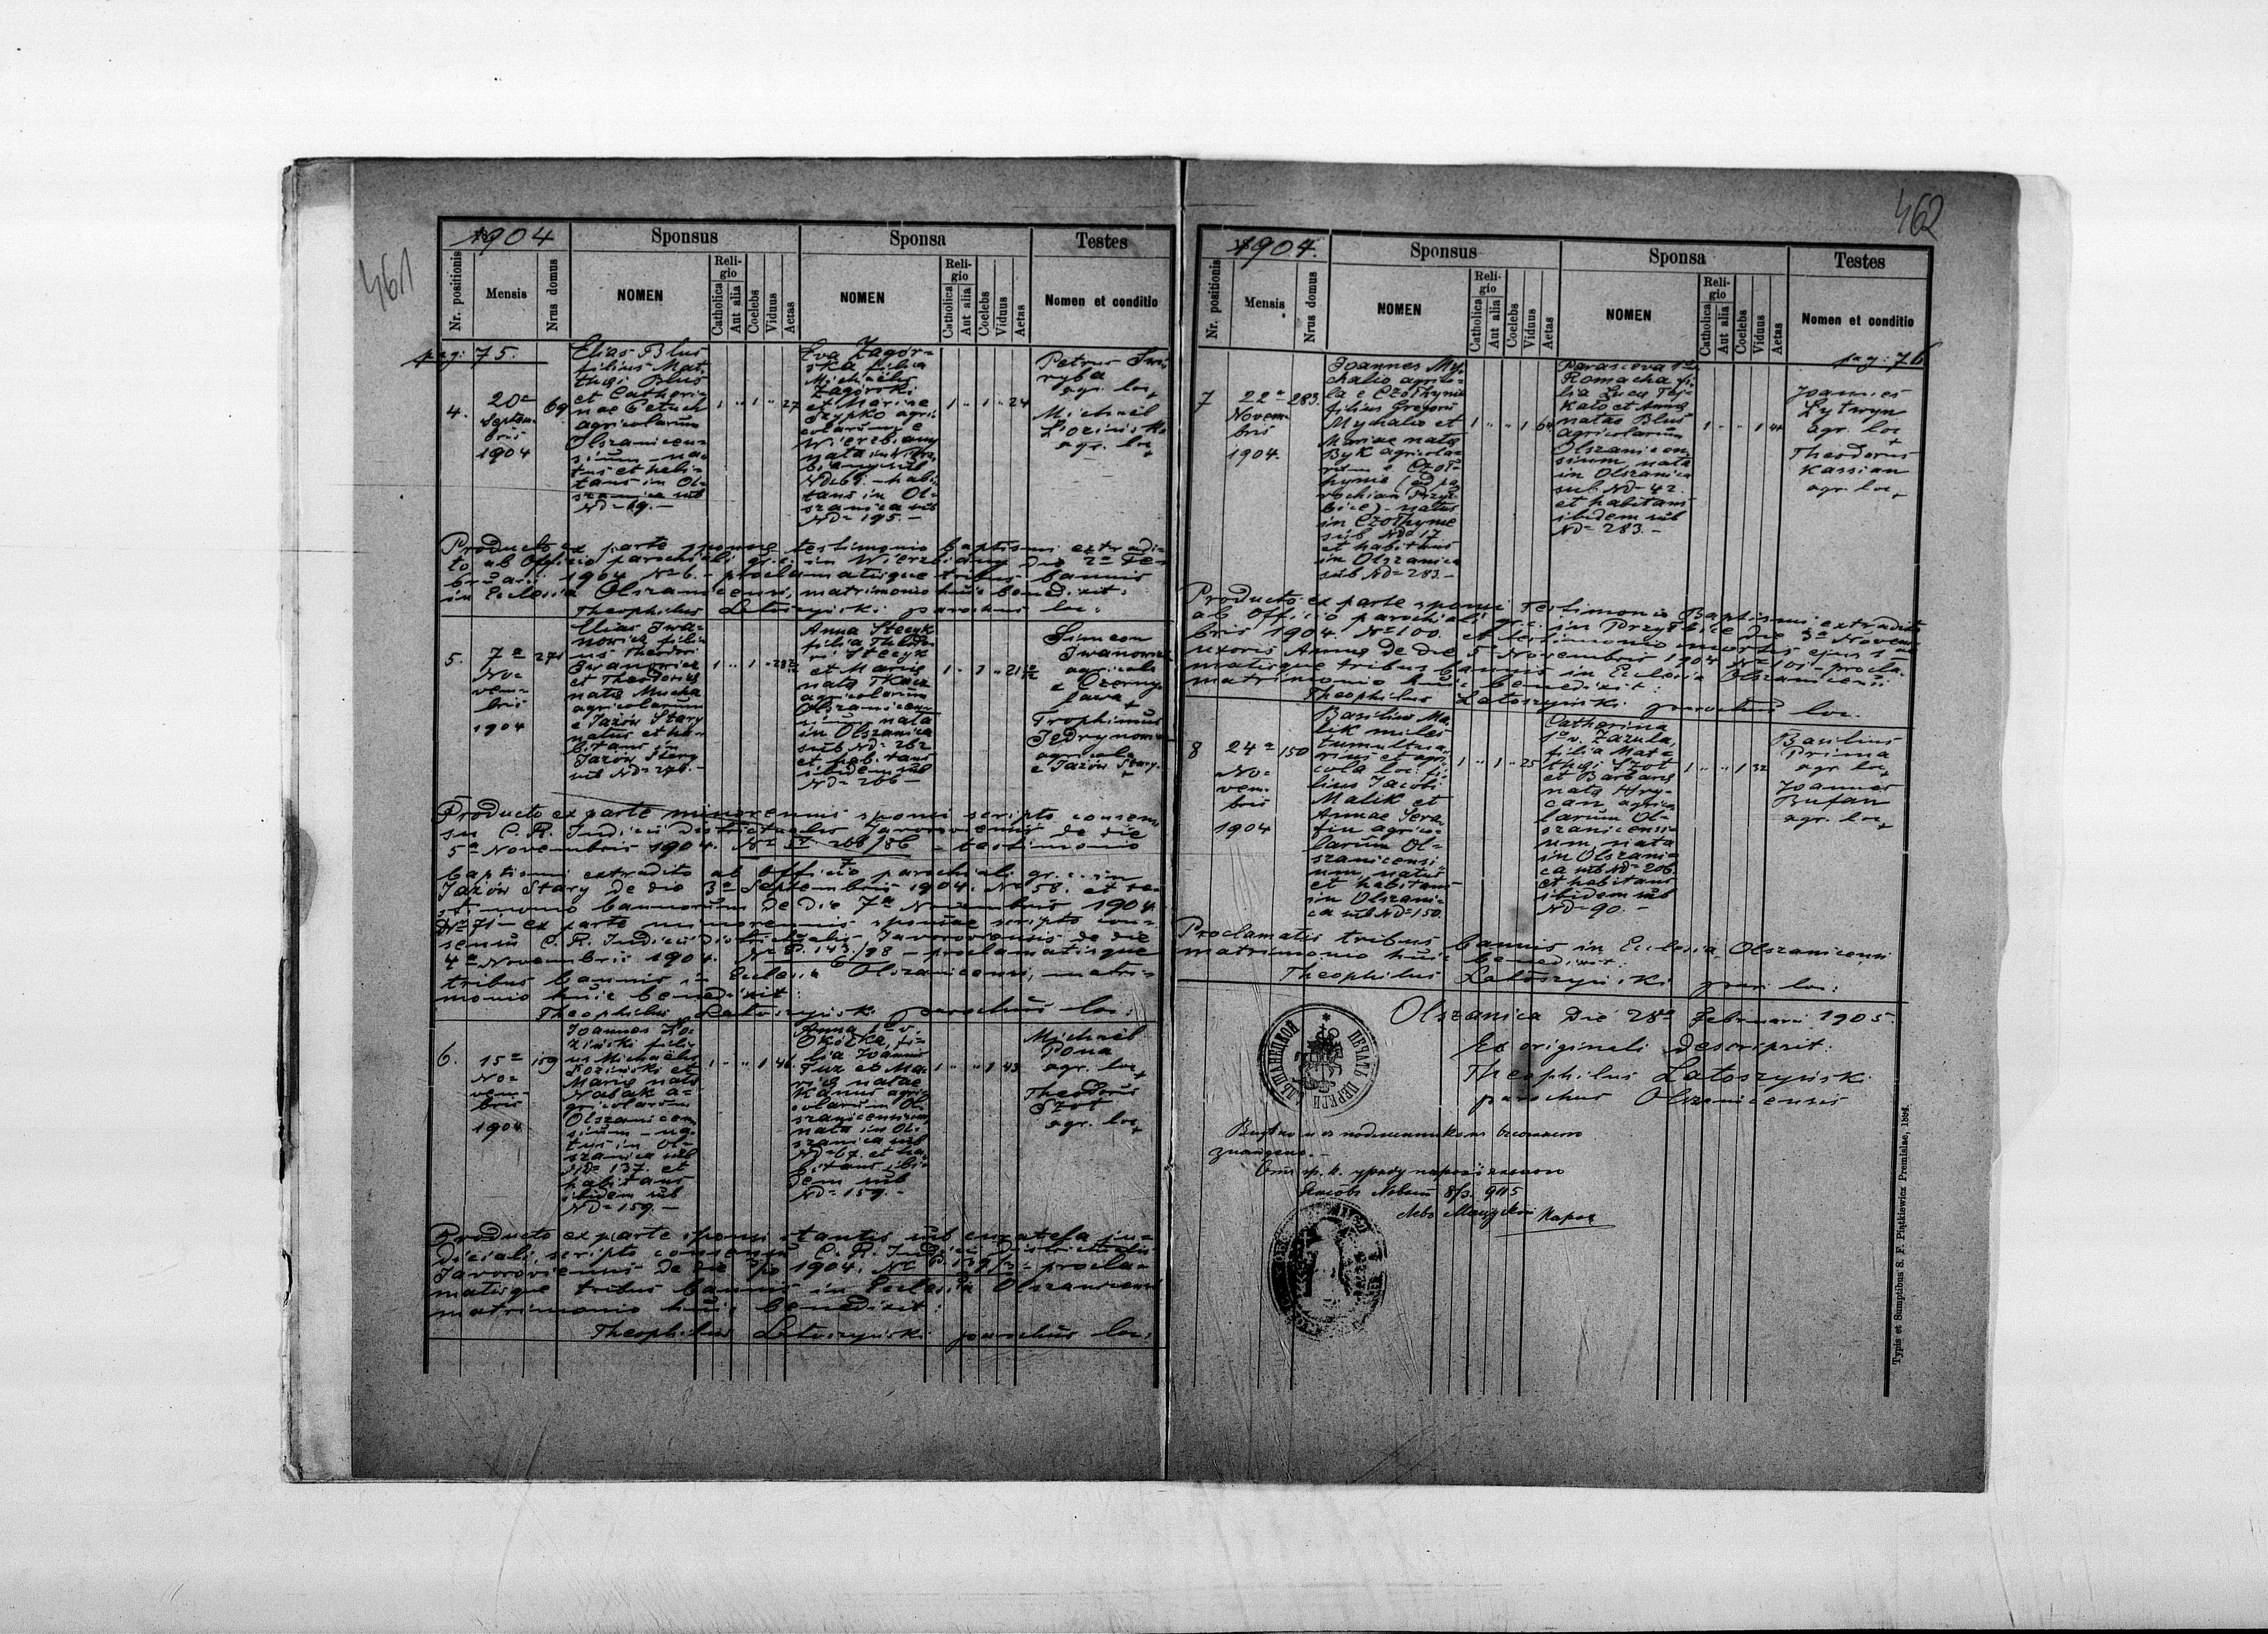 461
1904
Sponsus
Sponsa
Testes
Nr. positionis
Mensis
Nrus domus
NOMEN
Reli-
gio
Catholica
Aut alia
Coelebs
Viduus
Aetas
NOMEN
Reli-
gio
Catholica
Aut alia
Coelebs
Viduus
Aetas
Nomen et conditio
pag: 75.
4.
20a
Septem-
bris
1904
69
Elias Blus
filius Mat-
thaei Blus
et Cathari-
nae Petuch
agricolarum
Olszanicen-
sium - na-
tus et habi-
tans in Ol-
szanica sub
Nd= 69. -
1 " 1 " 27
Eva Zagór-
ska filia
Michaëlis
Zagórski
et Mariae
Szypko agri-
colarum e
Wierzbiany
nata in Wierz-
biany sub
- habi-
tans in Ol-
szanica sub
Nd= 195. -
1 " 1 " 24
Petrus
ryba
agr. loc +
Michaël
Łoziński
agr. loc +
Producto ex parte sponsae testimonio baptismi extradi-
to ab Officio parochiali gr. c. in Wierzbiany die 2a Fe-
bruarii 1904 No 6. - proclamatisque tribus bannis
in Ecclesia Olszanicensi, matrimonio huic benedixit:
Theophilus Latoszyński parochus loc:
5.
7a
No-
vem-
bris
1904
Elias Iwa-
nowicz fili-
us Theodori
Iwanowicz
et
natae Mucha
agricolarum
e Jazów Stary
natus et ha-
bitans in
Jazów Stary
sub Nd= 276. -
Anna Stecyk
filia Theodo-
ri Stecyk
et Mariae
natae Tkacz
agricolarum
Olszanicen-
sium nata
in Olszanica
sub Nd= 262
et habitans
ibidem sub
Nd= 266 -
Simeon
Iwanowicz
agricola
e Czerny-
lawa +
Trophimus
Jedrynowicz
agricola
e Jazów Stary. +
Producto ex parte minorennis sponsi scripto consen-
su C. R. Judicii Districtualis Javoroviensis de die
5a Novembris 1904. - testimonio
baptismi extradito ab officio parochiali gr. c. in
Jazów Stary de die 3a Septembris 1904. No 58. et te-
stimonio bannorum de die 7a Novembris 1904
No 71 - ex parte minorennis sponsae scripto con-
sensu C. R. Judicii Districtualis Javoroviensis de die
4a Novembris 1904. - proclamatisque
tribus bannis in Ecclesia Olszanicensi, matri-
monio huic benedixit:
Theophilus Latoszyński parochus loc:
6.
15a
No-
vem-
bris
1904
159
Joannes Ło-
ziński fili-
us Michaëlis
Łoziński et
Mariae natae
Nabak a-
gricolarum
Olszanicen-
sium - na-
tus in Ol-
szanica sub
Nd= 137. et
habitans
ibidem sub
Nd= 159. -
1 " " 1 46
Anna 1o v.
filia Joannis
et Ma-
riae natae
agri-
colarum Ol-
szanicensium
nata in Ol-
szanica sub
Nd= 67. et ha-
bitans ibi-
dem sub
Nd= 159. -
1 " " 1 43
Michaël
Pona
agr. loc +
Theodorus
Szot
agr. loc +
Producto ex parte sponsi stantis sub curatela ju-
diciali scripto consensu C. R. Judicii Districtualis
Javoroviensis de die 1904. - procla-
matisque tribus bannis in Ecclesia Olszanicensi
matrimonio huic benedixit:
Theophilus Latoszyński parochus loc:
462
1904.
Sponsus
Sponsa
Testes
Nr. positionis
Mensis
Nrus domus
NOMEN
Reli-
gio
Catholica
Aut alia
Coelebs
Viduus
Aetas
NOMEN
Reli-
gio
Catholica
Aut alia
Coelebs
Viduus
Aetas
Nomen et conditio
pag: 76
7
22a
Novem-
bris
1904.
283.
Joannes My-
chalio agrico-
la e Czołhynie
filius Gregorii
Mychalio et
Mariae natae
Byk agricola-
rum e Czoł-
hynie (ad pa-
rochiam Przył-
bice) - natus
in Czołhynie
sub Nd= 17.
et habitans
in Olszanica
sub Nd= 283. -
1 " " 1 64
Parasceva 1o v.
Romacha fi-
lia Lucae
et Annae
natae Blus
agricolarum
Olszanicen-
sium, nata
in Olszanica
sub Nd= 42.
et habitans
ibidem sub
Nd= 283. -
1 " " 1 44
Joannes
Łytwyn
agr. loc +
Theodorus
Kassian
agr. loc +
Producto ex parte sponsi Testimonio Baptismi extradito
ab Officio parochiali gr. c. in Przyłbice die 3a Novem-
bris 1904. No 100. et testimonio mortis ejus
uxoris Annae de die 5a Novembris 1904 No 101 - procla-
matisque tribus bannis in Ecclesia Olszanicensi
matrimonio huic benedixit:
Theophilus Latoszyński parochus loc.
8
24a
No-
vem-
bris
1904
150
Basilius Ma-
lik miles
tumultua-
rius et agri-
cola loc. fi-
lius Jacobi
Malik et
Annae Sera-
fin agrico-
larum Ol-
szanicensi-
um, natus
et habitans
in Olszani-
ca sub Nd= 150.
1 " 1 " 25
Catharina
1o v. Zazula,
filia Mat-
thaei Szot
et Barbarae
natae Hry-
can, agrico-
larum Ol-
szanicensi-
um, nata
in Olszani-
ca sub Nd= 206
et habitans
ibidem sub
Nd= 90. -
1 " " 1 32
Basilius
Prima
agr. loc +
Joannes
Bufan
agr. loc +
Proclamatis tribus bannis in Ecclesia Olszanicensi
matrimonio huic benedixit:
Theophilus Latoszyński par. loc:
Olszanica die 28a Februarii 1905.
Ex originali descripsit:
Theophilus Latoszyński
parochus Olszanicensis
ПЕЧАТЬ ЦЕРКВИ ОЛЬШАНЕЦКОЙ
8/3. 905
Typis et Sumptibus S. F. Piątkiewicz Premisliae, 1894.